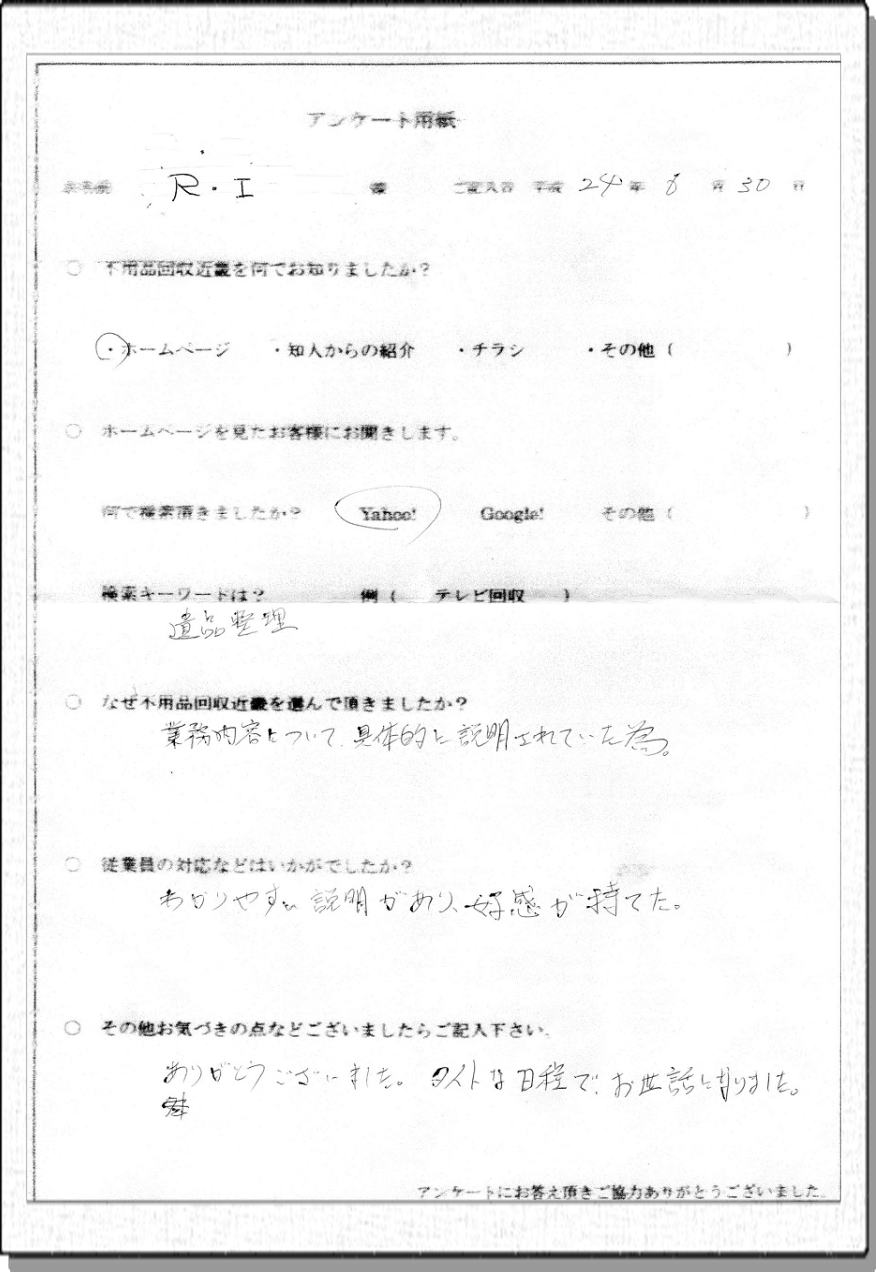 アンケート用紙
お客様 R・I 様 ご記入日 平成 24年 6月 30日
○ 不用品回収近畿を何でお知りましたか?
・ホームページ ・知人からの紹介 ・チラシ ・その他( )
○ ホームページを見たお客様にお聞きします。
何で検索頂きましたか? Yahoo! Google! その他( )
検索キーワードは? 例( テレビ回収 )
遺品整理
○ なぜ不用品回収近畿を選んで頂きましたか?
業務内容について、具体的に説明されていた為。
○ 従業員の対応などはいかがでしたか?
わかりやすい説明があり、好感が持てた。
○ その他お気づきの点などございましたらご記入下さい。
ありがとうございました。タイトな日程で、お世話になりました。
アンケートにお答え頂きご協力ありがとうございました。